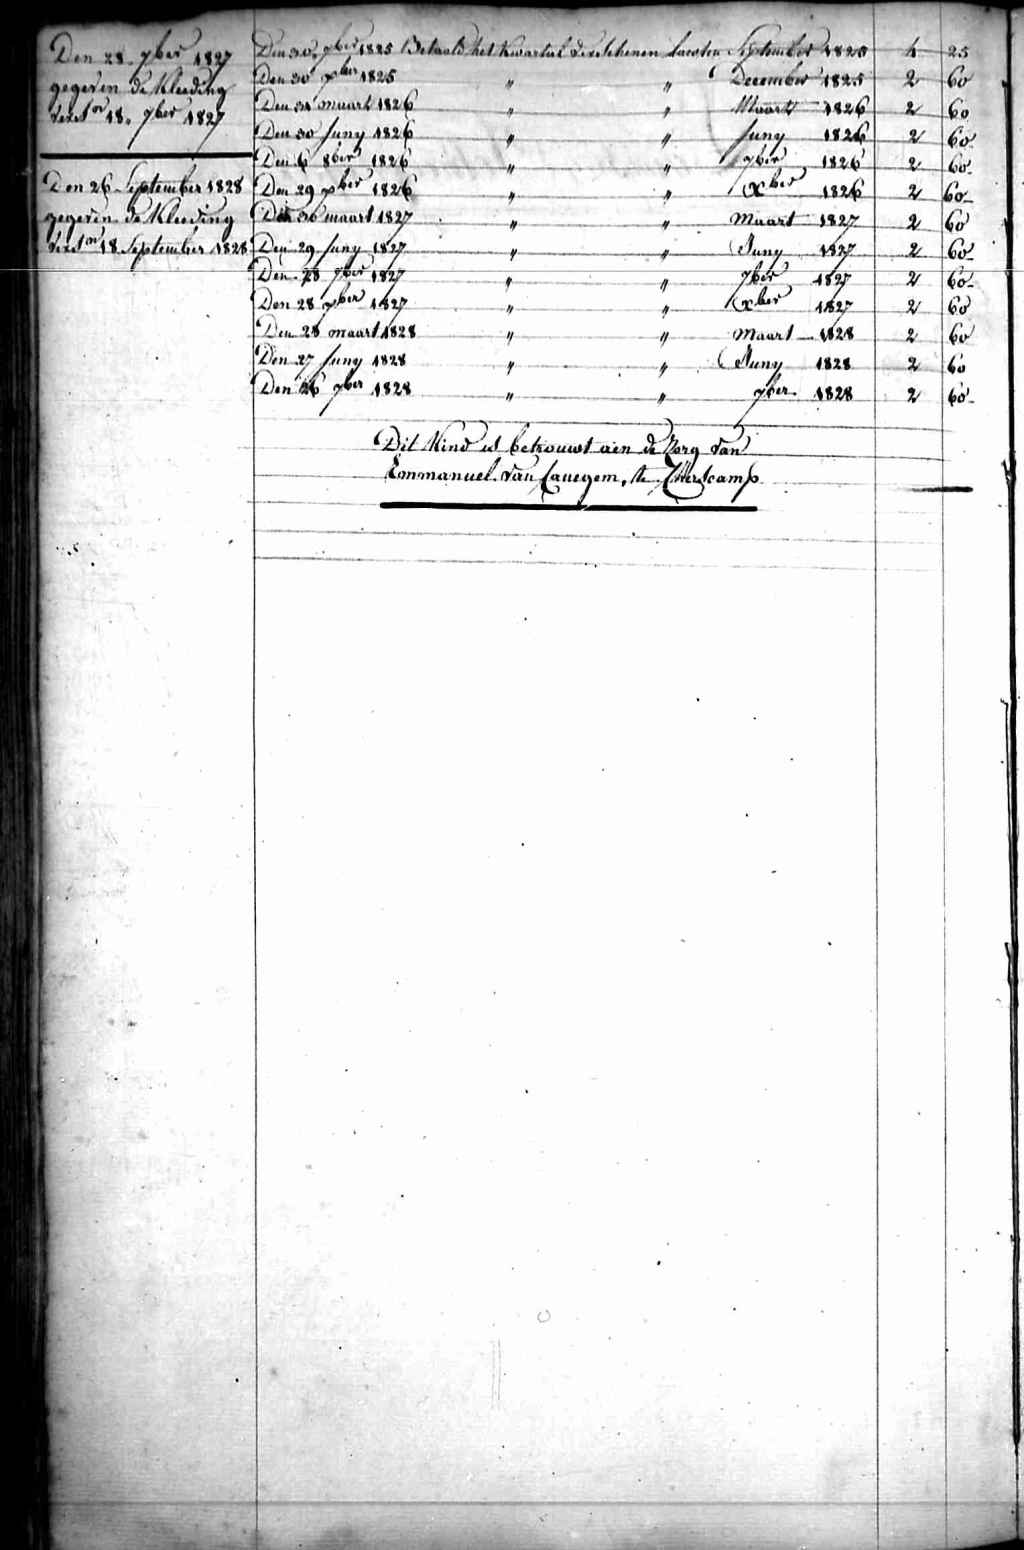 Den 28 7ber 1827
gegeven de Kleeding
verst en 18. 7ber 1827
Den 26 September 1828
gegeven de Kleeding
verst en 18 September 1828
Den 30 7ber 1825 Betaald het Kwartal verschenen laesten September 1825 4 25
Den 30 xber 1825 " " December 1825 2 60
Den 31 maart 1826 " " Maart 1826 2 60
Den 30 Juny 1826 " " Juny 1826 2 60
Den 6 8ber 1826 " " 7ber 1826 2 60
Den 29 xber 1826 " " xber 1826 2 60
Den 30 maart 1827 " " Maart 1827 2 60
Den 29 Juny 1827 " " Juny 1827 2 60
Den 28 7ber 1827 " " 7ber 1827 2 60
Den 28 xber 1827 " " xber 1827 2 60
Den 28 maart 1828 " " Maart 1828 2 60
Den 27 Juny 1828 " " Juny 1828 2 60
Den 26 7ber 1828 " " 7ber 1828 2 60
Dit Kind is betrouwt aen de Zorg van
Emmanuel Van Canegem, te